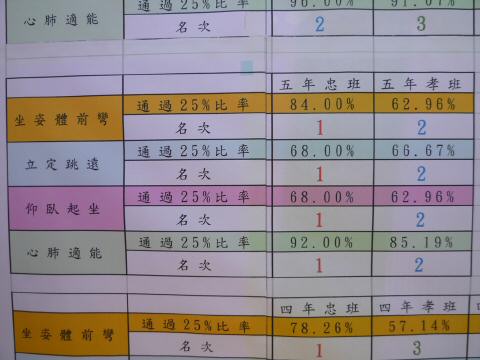 通過25%比率 96.00% 91.07%
心肺適能 名次 2 3
五年忠班 五年孝班
坐姿體前彎 通過25%比率 84.00% 62.96%
名次 1 2
立定跳遠 通過25%比率 68.00% 66.67%
名次 1 2
仰臥起坐 通過25%比率 68.00% 62.96%
名次 1 2
心肺適能 通過25%比率 92.00% 85.19%
名次 1 2
四年忠班 四年孝班
坐姿體前彎 通過25%比率 78.26% 57.14%
名次 1 3